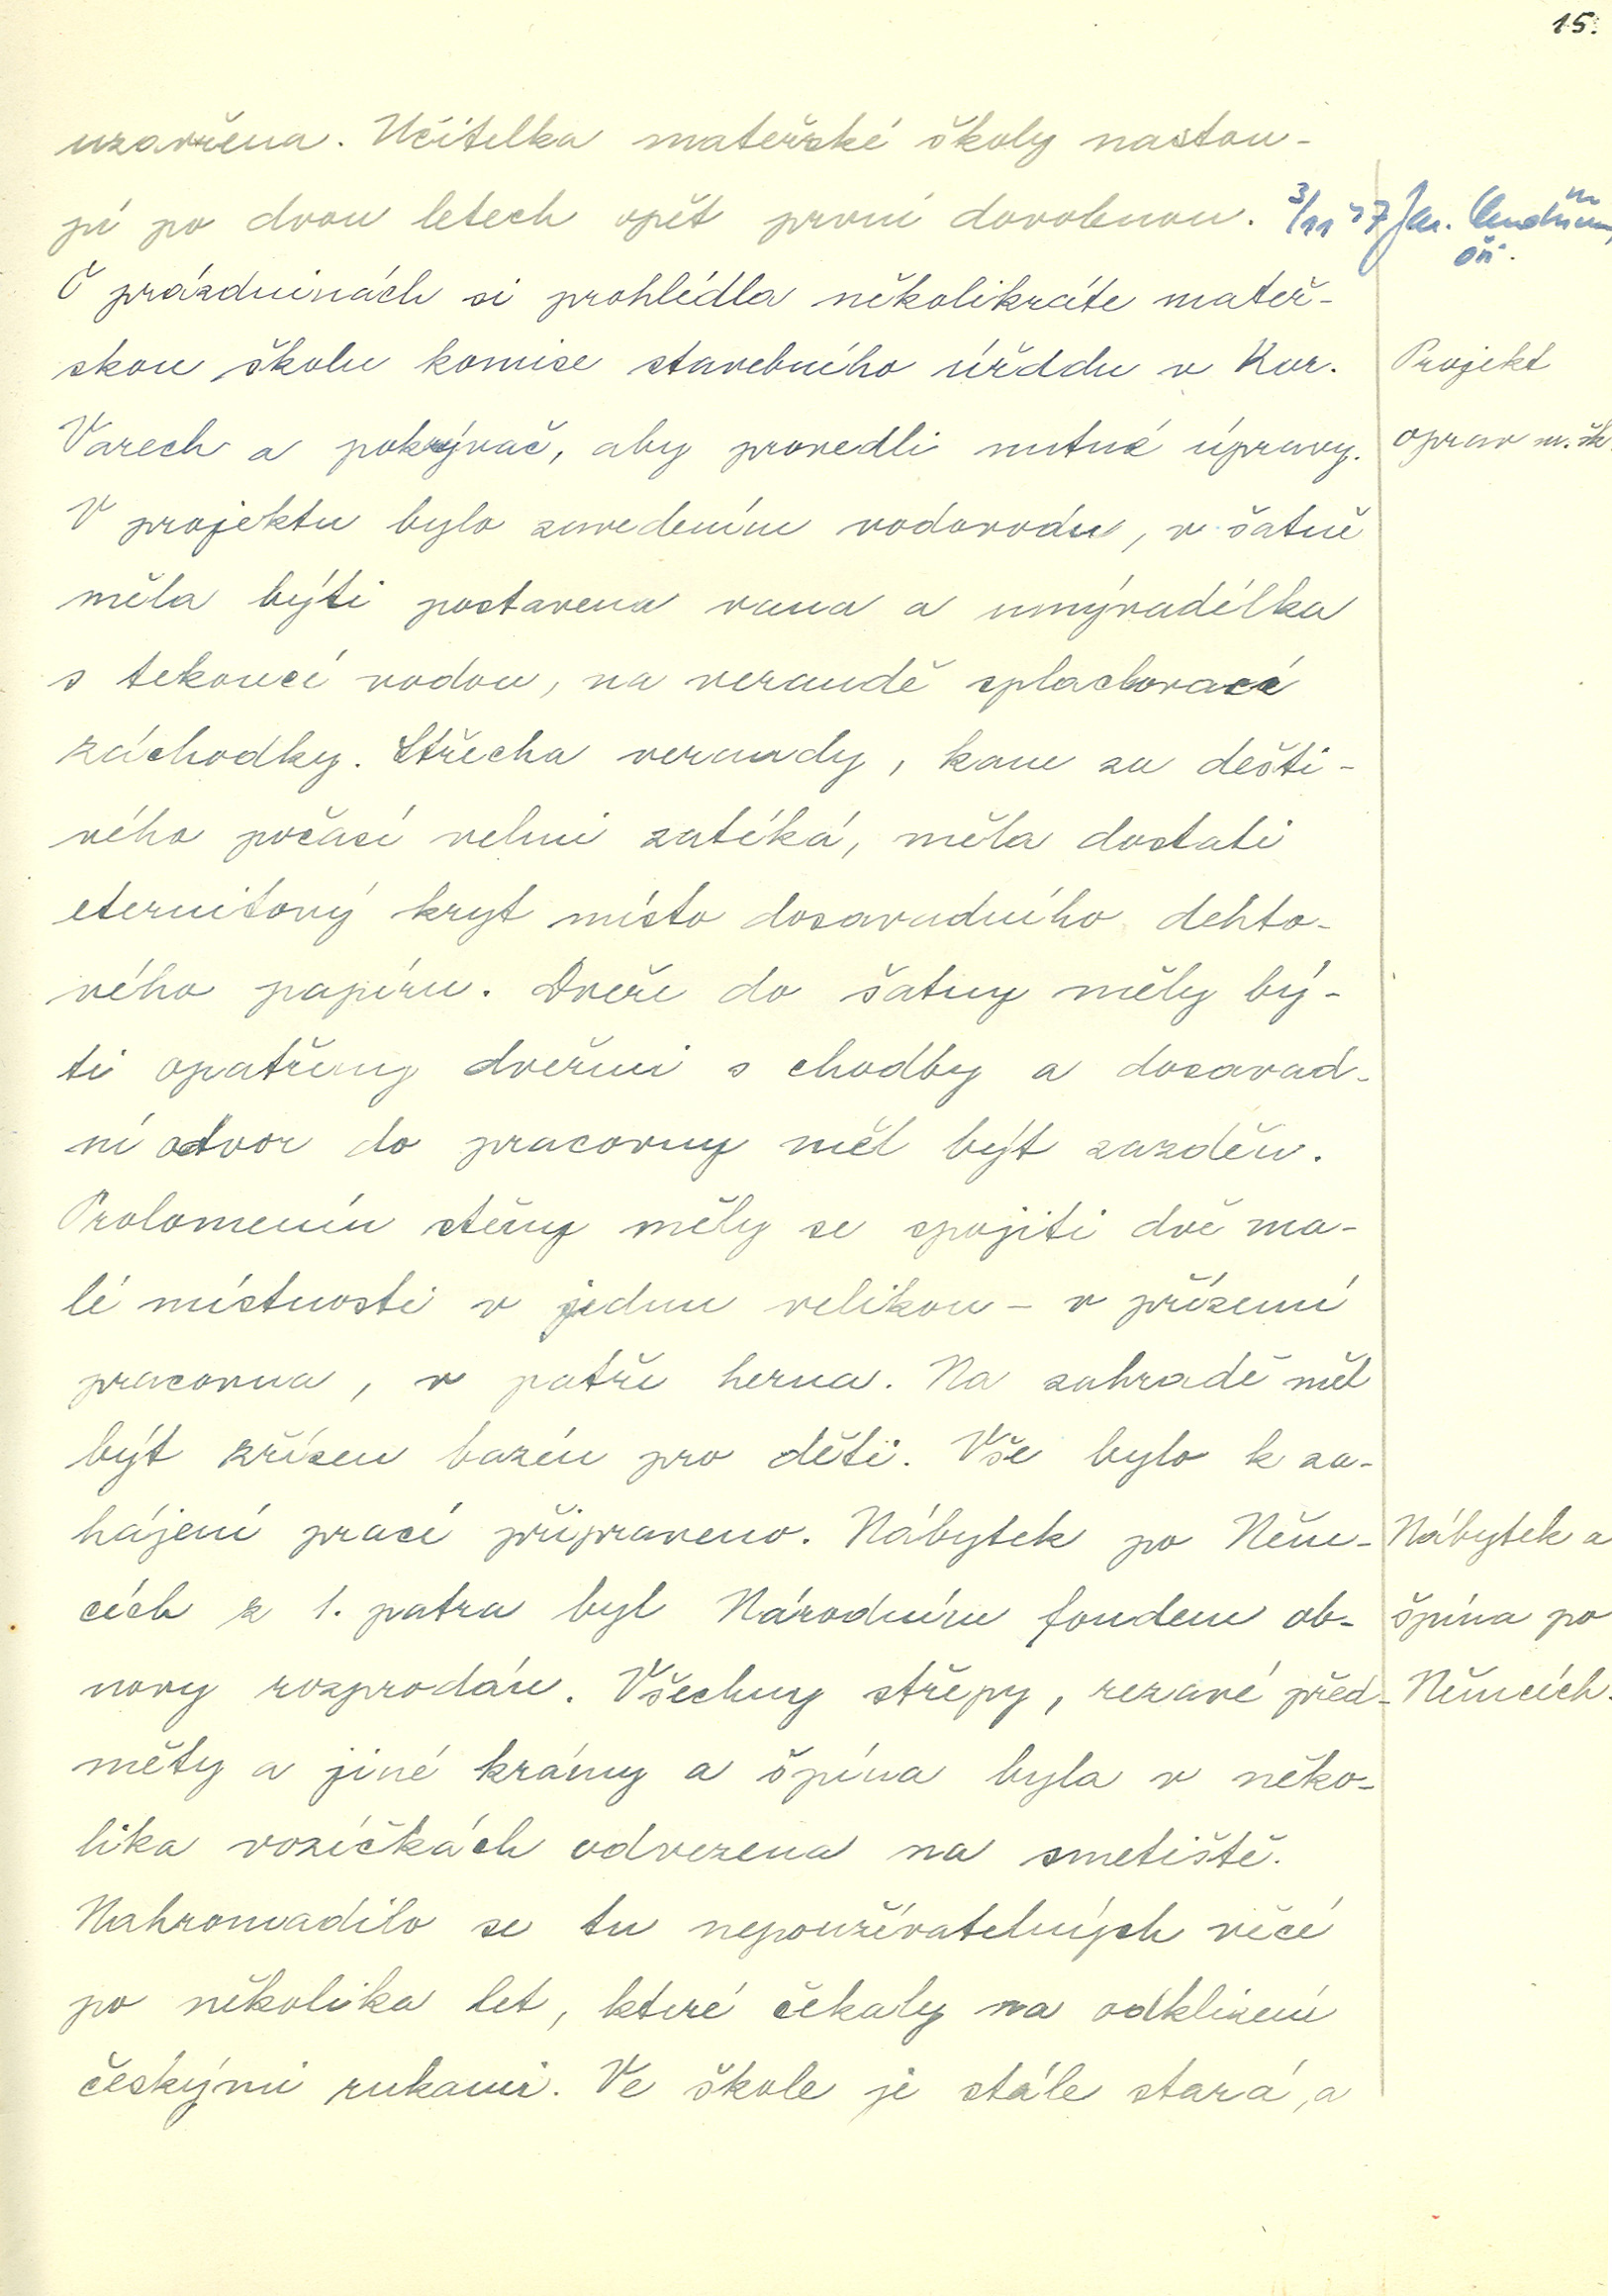 15.
uzavřena. Učitelka mateřské školy nastou-
pí po dvou letech opět první dovolenou. 3/11 47 Jar.
oši.
O prázdninách si prohlédla několikráte mateř-
skou školu komise stavebního úřddu v Kar.
Projekt
Varech a pokrývač, aby provedli nutné úpravy.
oprav m. šk.
V projektu bylo zavedením vodovodu, v šatně
měla býti postavena vana a umývadélka
s tekoucí vodou, na verandě splachovací
záchodky. Střecha verandy, kam za dešti-
vého počasí velmi zatéká, měla dostati
eternitový kryt místo dosavadního dehto-
vého papíru. Dveře do šatny měly bý-
ti opatřeny dveřmi s chodby a dosavad-
ní otvor do pracovny měl být zazděn.
Prolomením stěny měly se spojiti dvě ma-
lé místnosti v jednu velikou – v přízemí
pracovna, v patře herna. Na zahradě měl
být zřízen bazén pro děti. Vše bylo k za-
hájení prací připraveno. Nábytek po Něm-
Nábytek a
cích z 1. patra byl Národním fondem ob-
špína po
novy rozprodán. Všechny střepy, rezavé před-
Němcích.
měty a jiné krámy a špína byla v něko-
lika vozíčkách odvezena na smetiště.
Nahromadilo se tu nepoužívatelných věcí
po několika let, které čekaly na odklizení
českými rukami. Ve škole je stále stará, a